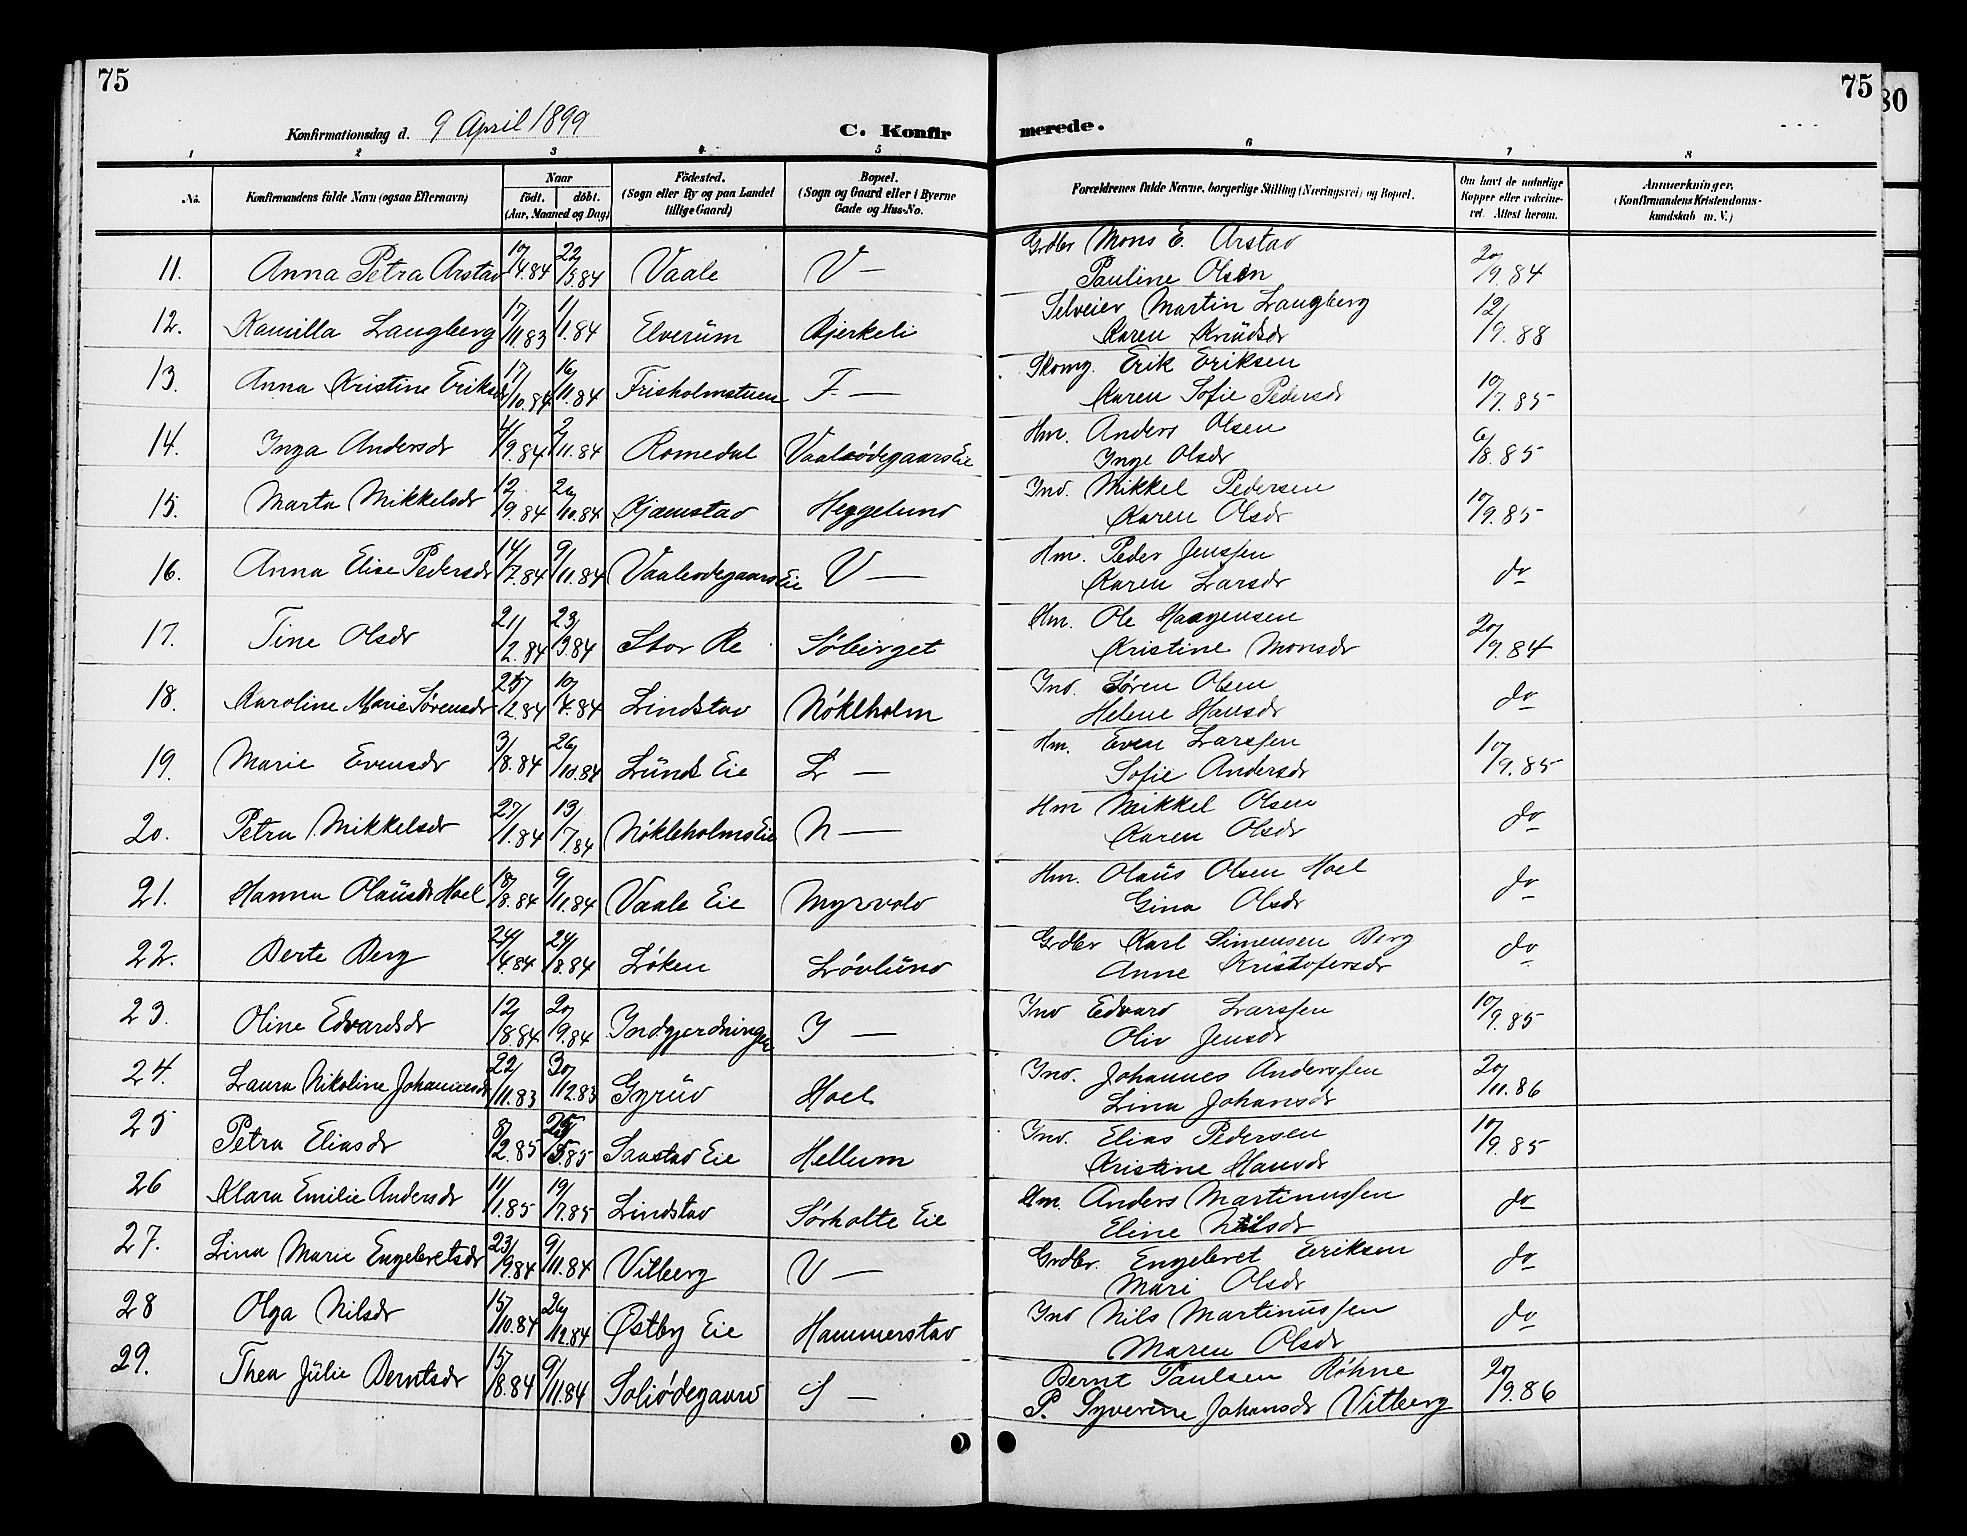 75
75
80
Konfirmationsdag d. 9 April 1899
C. Konfirmerede.
1 2 3 4 5 6 7 8
No. Konfirmandens fulde Navn (ogsaa Efternavn) Naar födt. döbt. (Aar, Maaned og Dag) Födested. (Sogn eller By og paa Landet tillige Gaard) Bopæl. (Sogn og Gaard eller i Byerne Gade og Hus-No.) Forældrenes fulde Navne, borgerlige Stilling (Næringsvei) og Bopæl. Om havt de naturlige Kopper eller vakcineret. Attest herom. Anmærkninger. (Konfirmandens Kristendomskundskab m. V.)
11. Anna Petra Arstad 10/4.84 22/5.84 Vaale V — Grdbr Mons E. Arstad 20/9.84
Pauline Olsen
12. Kamilla Langberg 17/11.83 1/1.84 Elverum Bjerkeli Selveier Martin Langberg 12/9.88
Karen Knudsdr
13. Anna Kristine Eriksdr 17/10.84 16/11.84 Frisholmstuen F. — Skomg. Erik Eriksen 10/7.85
Karen Sofie Pedersdr
14. Inga Andersdr 4/9.84 2/11.84 Romedal Vaalsødegaards Eie Hm. Anders Olsen 6/8.85
Inge Olsdr
15. Marta Mikkelsdr 12/9.84 26/10.84 Kjæmstad Heggelund Ind. Mikkel Pedersen 10/9.85
Karen Olsdr
16. Anna Elise Pedersdr 14/7.84 9/11.84 Vaaleødegaards Eie V — Hm. Peder Jenssen do
Karen Larsdr
17. Tine Olsdr 21/2.84 23/3.84 Stor Re Söbirget Hm. Ole Haagensen 20/9.84
Kristine Monsdr
18. Karoline Marie Sørensdr 25/2.84 10/4.84 Lindstad Nøkleholm Ind. Søren Olsen do
Helene Hansdr
19. Marie Evensdr 3/8.84 26/10.84 Lunds Eie L — Hm. Even Larssen 10/9.85
Sofie Andersdr
20. Petra Mikkelsdr 27/1.84 13/7.84 Nøkleholms Eie N — Hm Mikkel Olsen do
Karen Olsdr
21. Hanna Olausdr Hoel 18/8.84 9/11.84 Vaale Eie Myrvold Hm. Olaus Olsen Hoel do
Gina Olsdr
22. Berte Berg 24/4.84 24/8.84 Løken Løvlund Grdbr Karl Simensen Berg do
Anne Kristofersdr
23. Oline Edvardsdr 12/8.84 20/9.84 Indgjerdningen I — Ind Edvard Larssen 10/9.85
Oliv Jensdr
24. Laura Nikoline Johannesdr 22/11.83 30/12.83 Gyrud Hoel Ind. Johannes Anderssen 20/11.86
Lina Johansdr
25 Petra Eliasdr 8/2.85 25/5.85 Saastad Eie Hellum Ind. Elias Pedersen 10/9.85
Kristine Hansdr
26 Klara Emilie Andersdr 11/1.85 19/7.85 Lindstad Sørholte Eie Hm. Anders Martinussen do
Eline Nilsdr
27. Lina Marie Engebretsdr 23/9.84 9/11.84 Vitberg V — Grdbr. Engebret Eriksen do
Mari Olsdr
28 Olga Nilsdr 15/10.84 26/12.84 Østby Eie Hammerstad Ind Nils Martinussen do
Maren Olsdr
29. Thea Julie Berntsdr 15/8.84 9/11.84 Soliødegaard S — Bernt Paulsen Røhne 20/9.86
P. Syverine Johansdr Vitberg